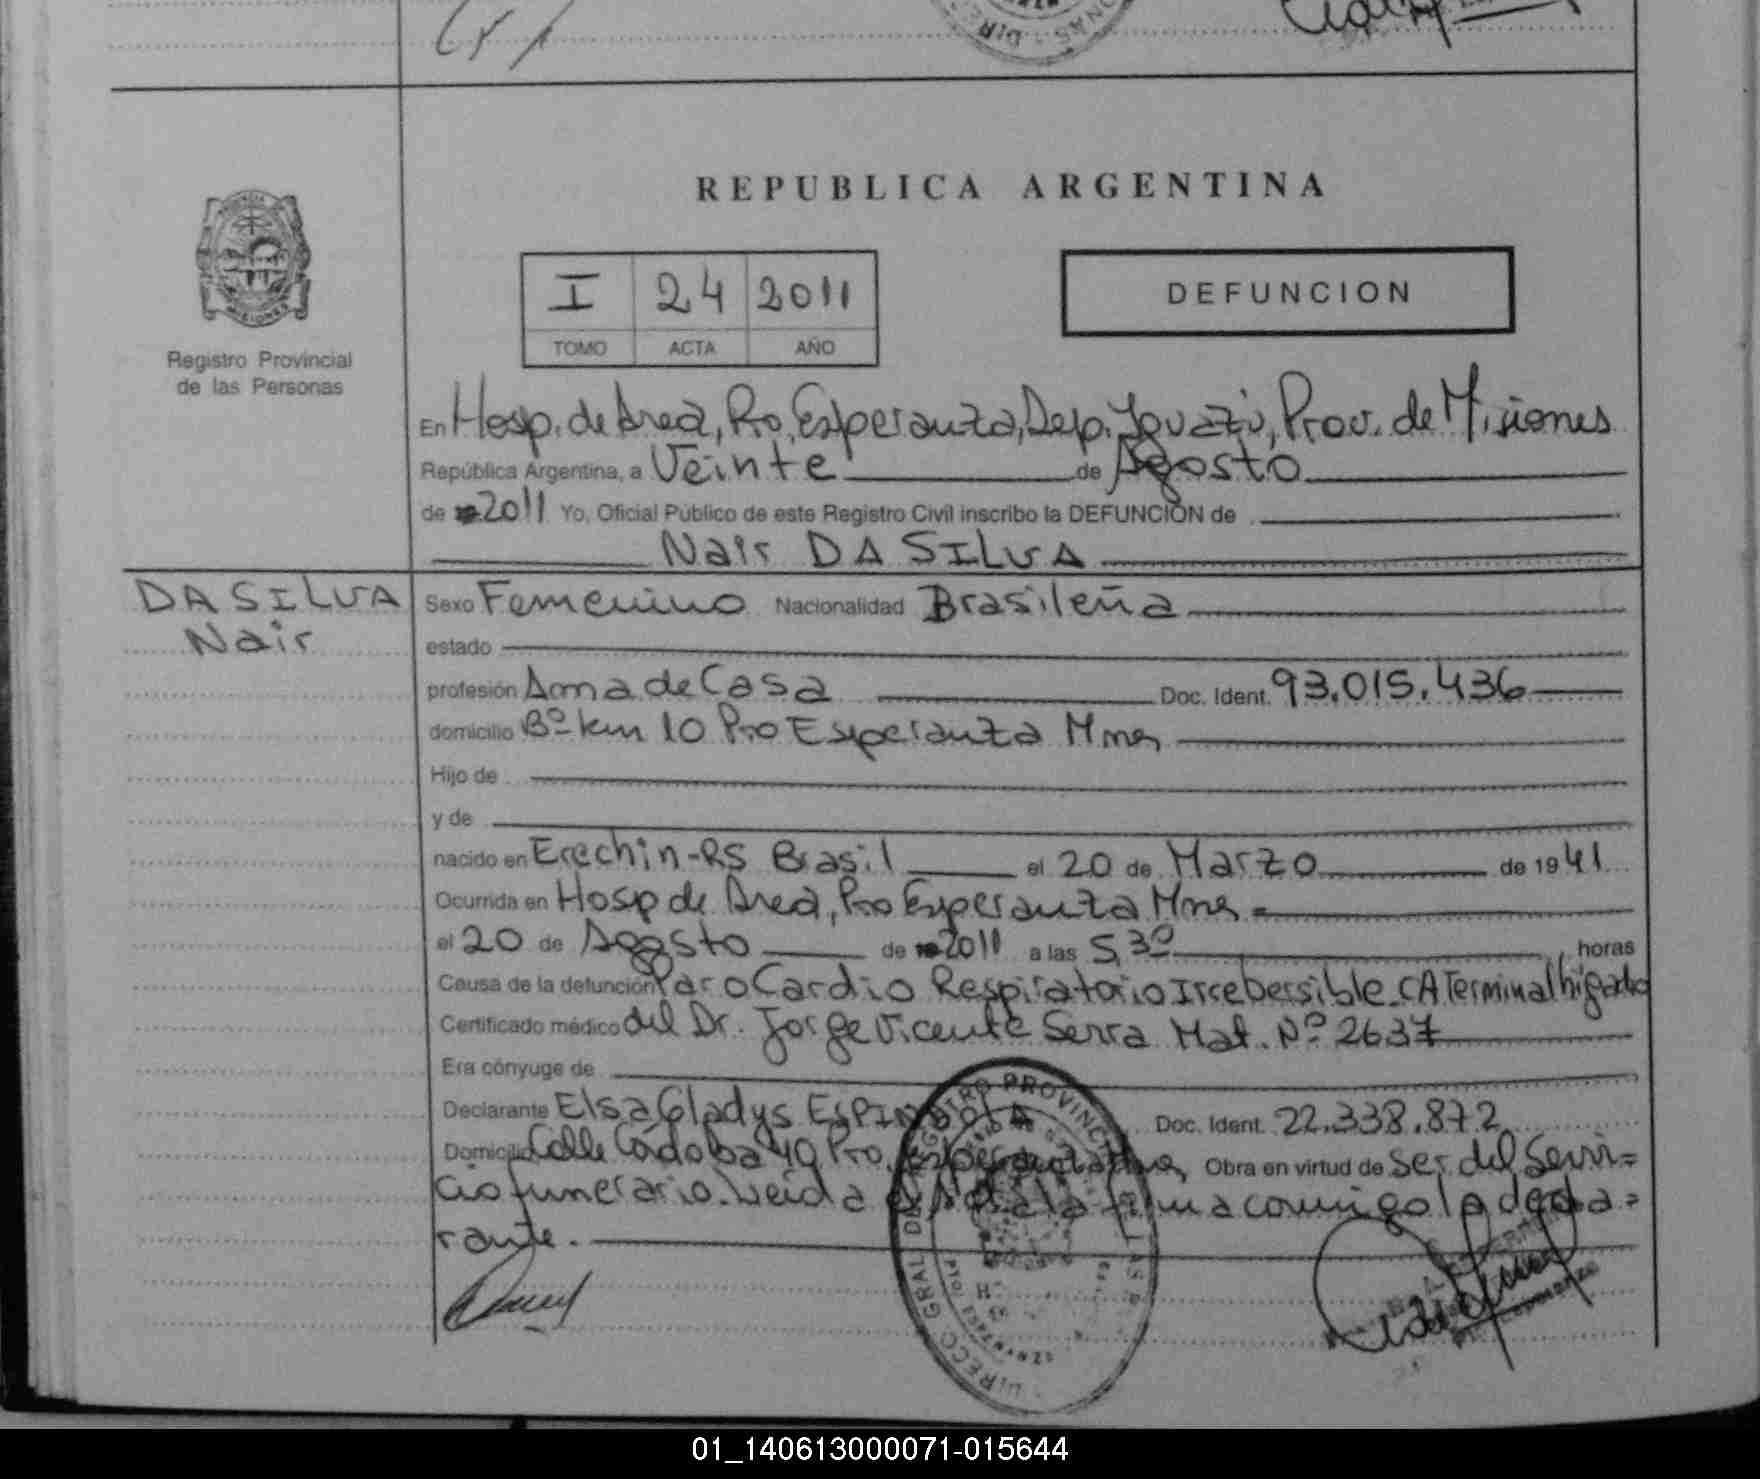 REPUBLICA ARGENTINA
I 24 2011
TOMO ACTA AÑO
DEFUNCION
MISIONES
Registro Provincial
de las Personas
En Hosp. de Area, Pto. Esperanza, Dep. Iguazú, Prov. de Misiones
República Argentina, a Veinte de Agosto
de 2011 Yo, Oficial Público de este Registro Civil inscribo la DEFUNCIÓN de
Nair DA SILVA
DA SILVA
Nair
Sexo Femenino Nacionalidad Brasileña
estado
profesión Ama de Casa Doc. Ident. 93.015.436
domicilio Bº km 10 Pto Esperanza Mnes
Hijo de
y de
nacido en Erechin-RS Brasil el 20 de Marzo de 1941
Ocurrida en Hosp de Area, Pto Esperanza Mnes =
el 20 de Agosto de 2011 a las 5,30 horas
Causa de la defunción Paro Cardio Respiratorio Irrebersible. CA Terminal higado
Certificado médico del Dr. Jorge Vicente Serra Mat. Nº 2637
Era cónyuge de
Declarante Elsa Gladys ESPINDOLA Doc. Ident. 22.338.872
Domicilio Calle Córdoba 40 Pto. Esperanza Mnes, Obra en virtud de ser del Servi=
cio funerario. Leida el Acta la firma conmigo la decla=
rante.
DIRECC GRAL DEL REGISTRO PROVINCIAL DE LAS PERSONAS
01_140613000071-015644